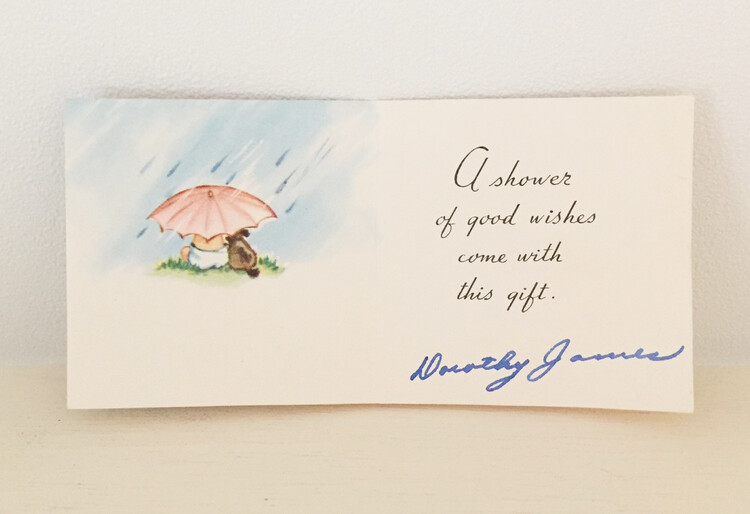 A shower
of good wishes
come with
this gift.
Dorothy James